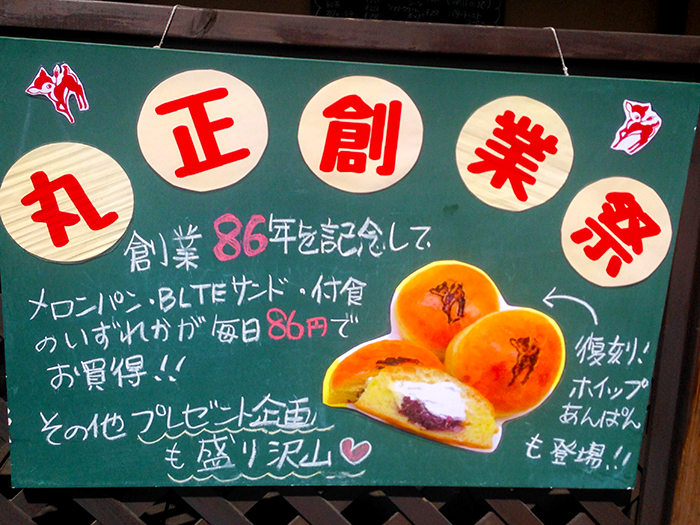 丸正創業祭
創業86年を記念して
メロンパン・BLTEサンド・付食
のいずれかが毎日86円で
お買得!!
その他プレゼント企画
も盛り沢山
復刻!
ホイップ
あんぱん
も登場!!